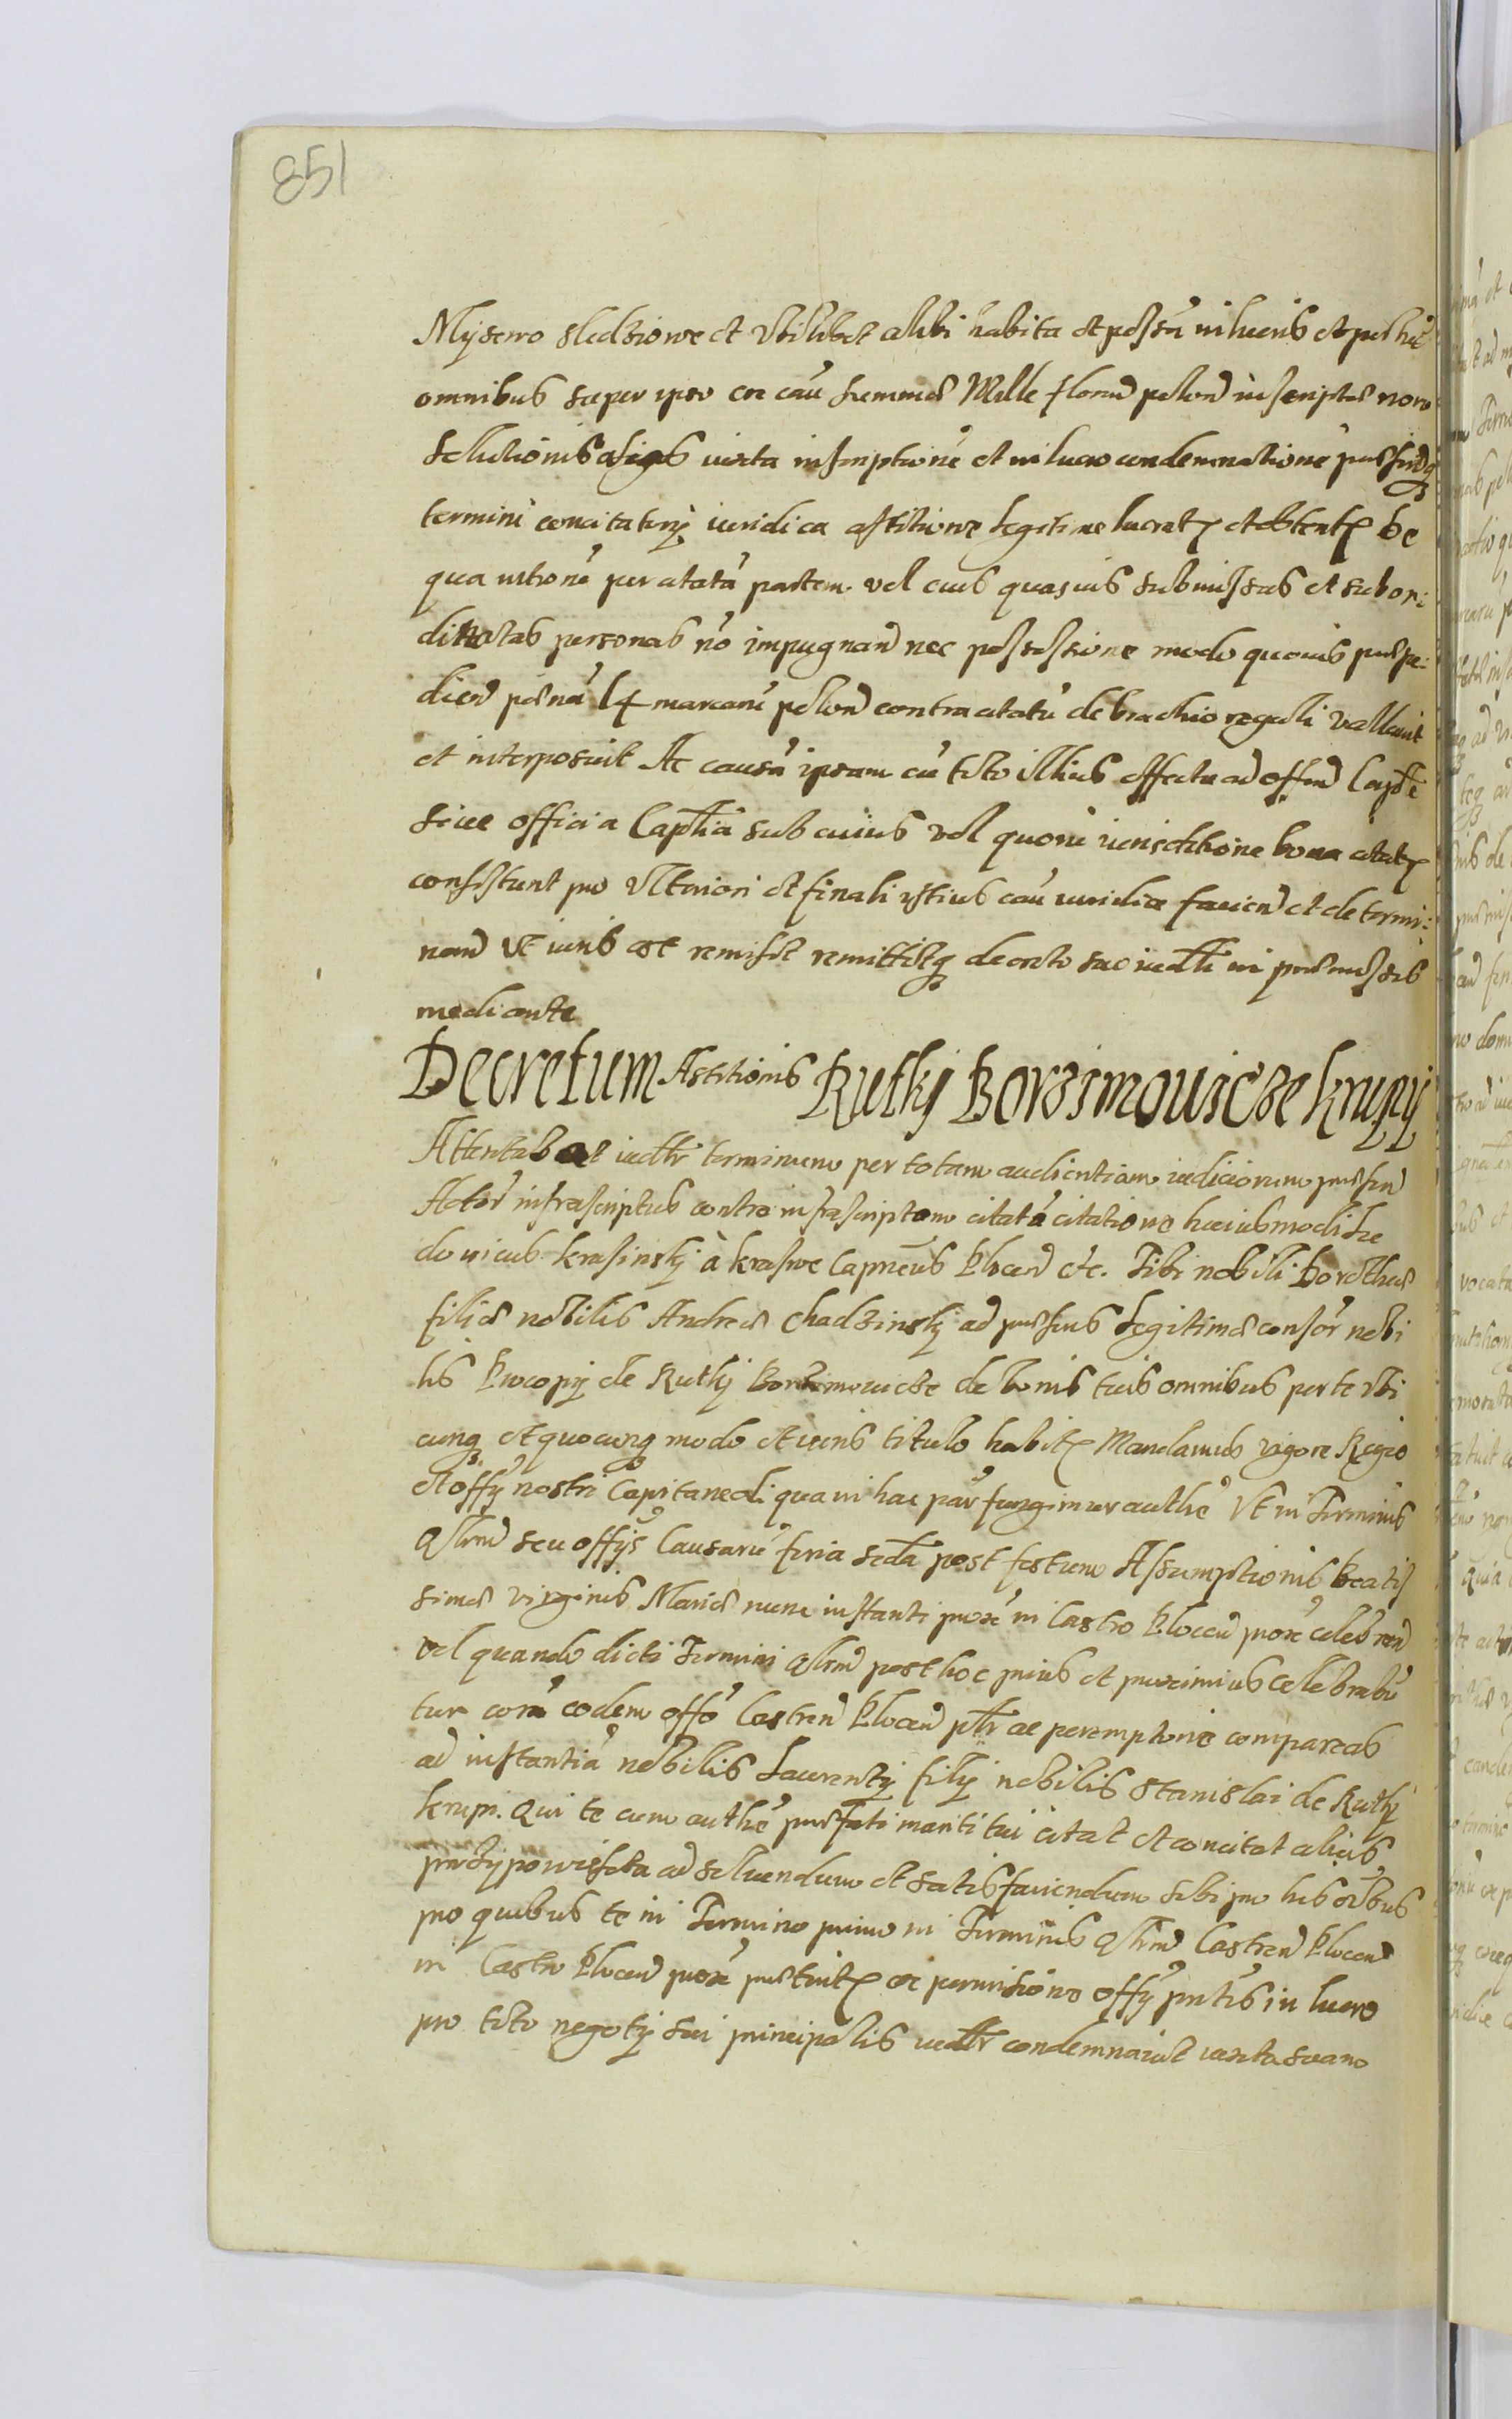 851
Mÿsewo sledziowe et Vbilibet alibi habita et possũ in lucris et per huc
omnibus super ipso ex cau summæ Mille floren polon inscriptæ non
solutionis iuxta inscriptionẽ et in lucro condemnationẽ præsentq
termini concitatorÿ iuridica astitione legitime lucrat et obtent
qua intronẽ per citatã partem vel eius quasuis submissas et subor:
dinatas personas nõ impugnan nec possessione modo quouis præpe:
dien pœnã 14 marcarũ polon contra citatũ de brachio regali vallauit
et interposuit Ac causã ipsam cũ toto illius effectu ad offm Capte
siue officia Captia sub cuius vel quorũ iurisdictione bona citat
consistunt pro Vlteriori et finali istius cau iuridice faciend et determi:
nand Vt iuris est remisit remittitq decreto suo iudtr in præmissis
mediante
Decretum Astitionis Rutkj Borzimowicze krupÿ
Attentabat iudtr terminum per totam audientiam iudiciorum præsen
Actor infrascriptus contra infrascriptam citatã citatione huiusmodi Lu
douicus krasinskj à krasne Capneus Plocen etc. Tibi nobili Dorotheæ
filiæ nobilis Andreæ Chadzinskj ad præsens legitimæ consor nobi
lis Procopÿ de Rutkj Borzimowicze de bonis tuis omnibus per te vbi
cunq et quocunq modo et iuris titulo habit Mandamus vigore Regio
et offÿ nostri Capitanealj qua in hac par fungimur authẽ Vt in Terminis
Qlrm seu offÿs Causarũ feria secda post festum Assumptionis beatis
simæ virginis Mariæ nunc instanti prox in Castro Plocen prox celebran
vel quando dicti Termini Qlrm post hoc prius et proximius celebrabũ
tur corã eodem offo Castren Plocen ptr ac peremptorie compareas
ad instantiã nobilis Laurentÿ filÿ nobilis Stanislai de Rutkj
krupi. Qui te cum authẽ præfati mariti tui citat et concitat alias
przÿpowiesta ad soluendum et satisfaciendum sibi pro his oĩbus
pro quibus te in Termino primo in Terminis Qlrm Castren Plocen
in Castro Plocen prox præterit ex permissione offÿ pntis in lucro
pro toto negotÿ sui principalis iudtr condemnauit iuxta suam